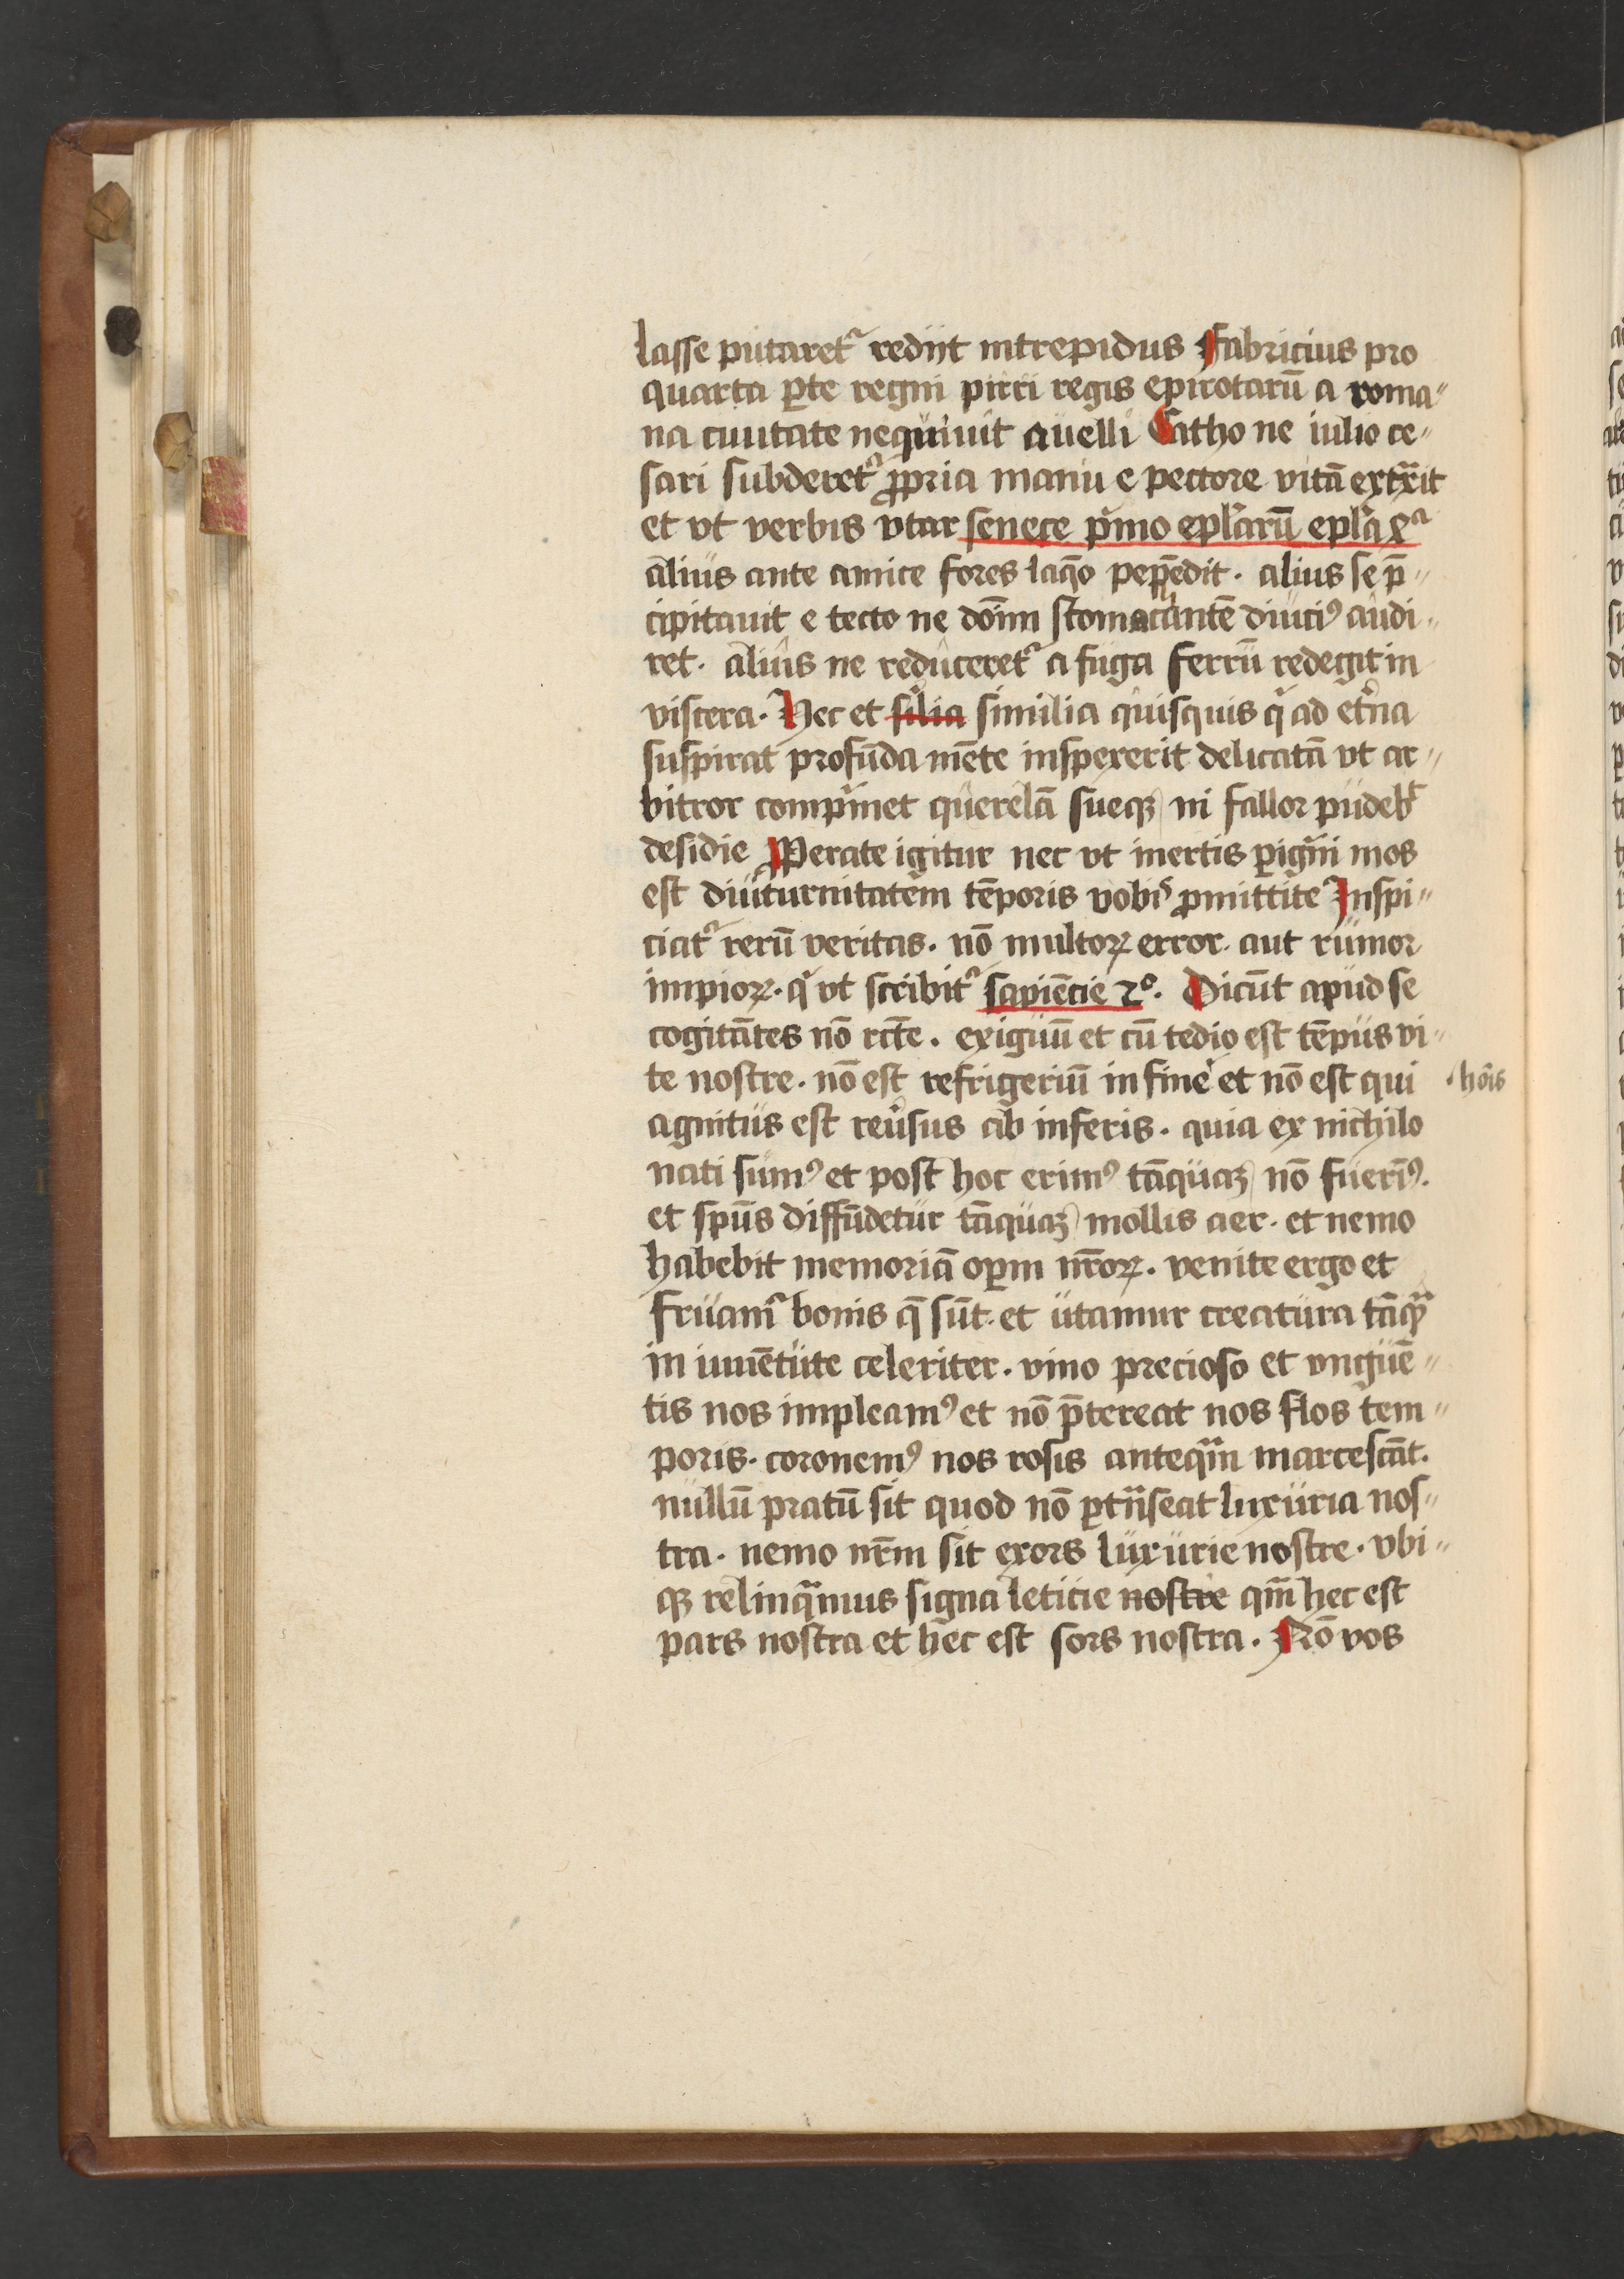 lasse putaret᷑ redijt intrepidus Fabricius pro
quarta ꝑte regni pirri regis epirotarū a roma〃
na ciuitate nequiuit auelli Catho ne iulio ce〃
sari subderet᷑ ꝓpria manu e pectore vitā extͣxit
et vt verbis vtar senece pͥmo epl̕arū epl̕a xͣ
alius ante amice fores laqͦo pepēdit · alius se p̄〃
cipitauit e tecto ne doīm stomacantē diuciꝰ audi〃
ret · alius ne reduceret᷑ a fuga ferrū redegit in
viscera · Hec et sil̕ia similia quisquis qͥ ad et̕na
suspirat profūda mēte inspexerit delicatā vt ar〃
bitror compͥmet querelā sueqꝫ ni fallor pudebᵗ
desidie Ꝓperate igitur nec vt inertis ꝑigͥni mos
est diuturnitatem tēporis vobis ꝓmittite Inspi〃
ciat᷑ rerū veritas · nō multoꝝ error · aut rumor
impioꝝ · qͥ vt scribit᷑ sapiēcie 2º · Dicūt apud se
cogitātes nō rc̄te · exiguū et cū tedio est tēpus vi〃
te nostre · nō est refrigeriū in fine et nō est qui · hoīs
agnitus est reu̕sus ab inferis · quia ex nichilo
nati sumꝰ et post hoc erimꝰ tāquaꝫ nō fuerīꝰ ·
et spūs diffūdetur tāquaꝫ mollis aer · et nemo
habebit memoriā oꝑm nr̄oꝝ · venite ergo et
fruam᷑ bonis q̄ sūt · et utamur creatura tāqͣ
in iuuētute celeriter · vino precioso et vnguē〃
tis nos impleamꝰ et nō p̄tereat nos flos tem〃
poris · coronemꝰ nos rosis anteqͣm marcescāt ·
nullū pratū sit quod nō ꝑtͣnseat luxuria nos〃
tra · nemo nr̄m sit exors luxurie nostre · vbi〃
qꝫ relinqͣmus signa leticie nostre qm̄ hec est
pars nostra et hec est sors nostra · Nō vos